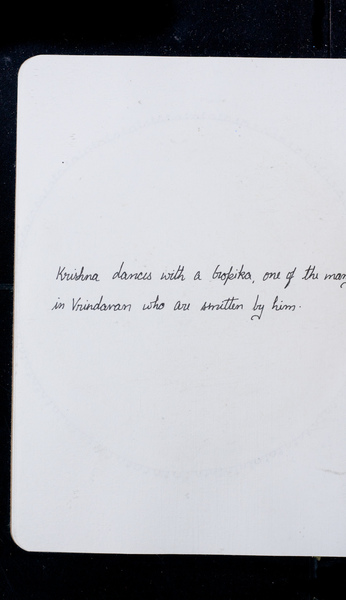 Krishna dances with a Gopika, one of the many
in Vrindavan who are smitten by him.